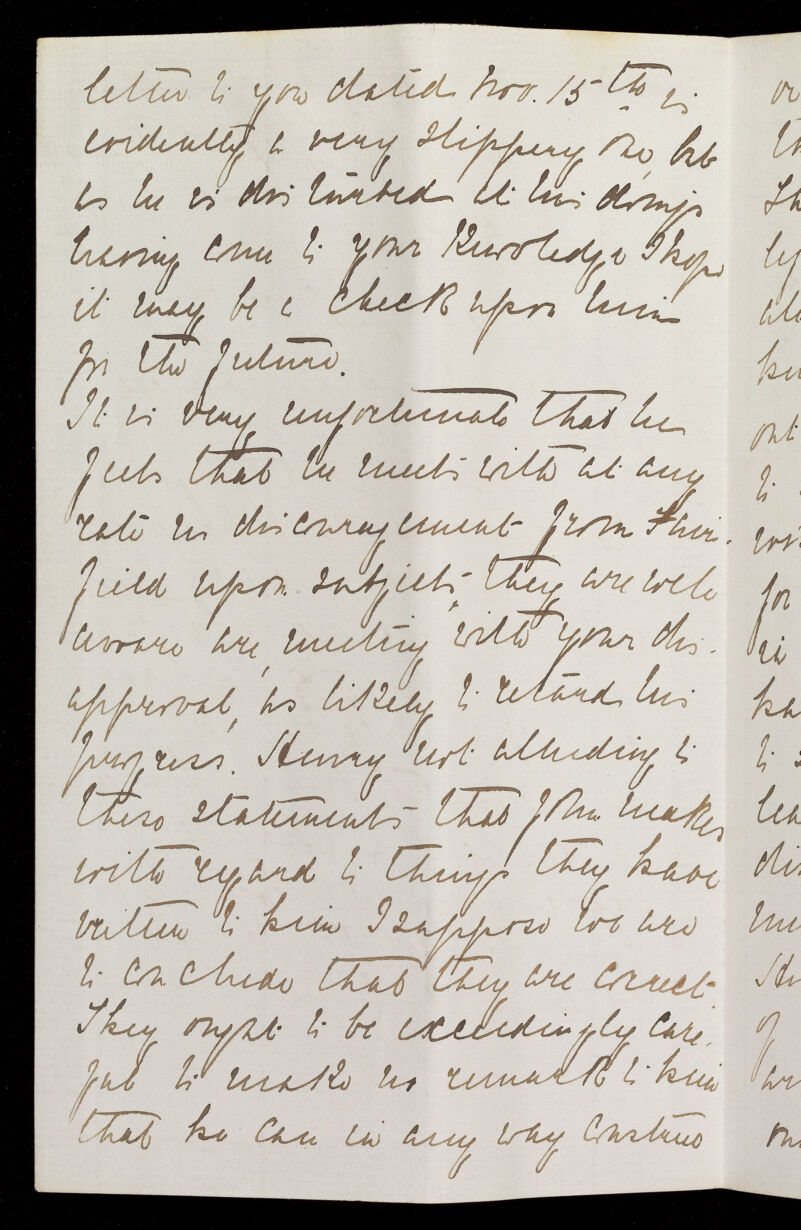 letter to you dated Nov. 15th is
evidently a very slippery one, but
as he is disturbed at his doings
having come to your knowledge I hope
it may be a check upon him
for the future.
It is very unfortunate that he
feels that he meets with at any
rate no discouragement from Fair-
field upon subjects they are well
aware are, meeting with your dis-
approval, as likely to retard his
progress. Henry not alluding to
these statements that John makes
with regard to things they have
written to him I suppose we are
to conclude that they are correct.
They ought to be exceedingly care-
ful to make no remark to him
that he can in any way construe
or
to
for
out
to